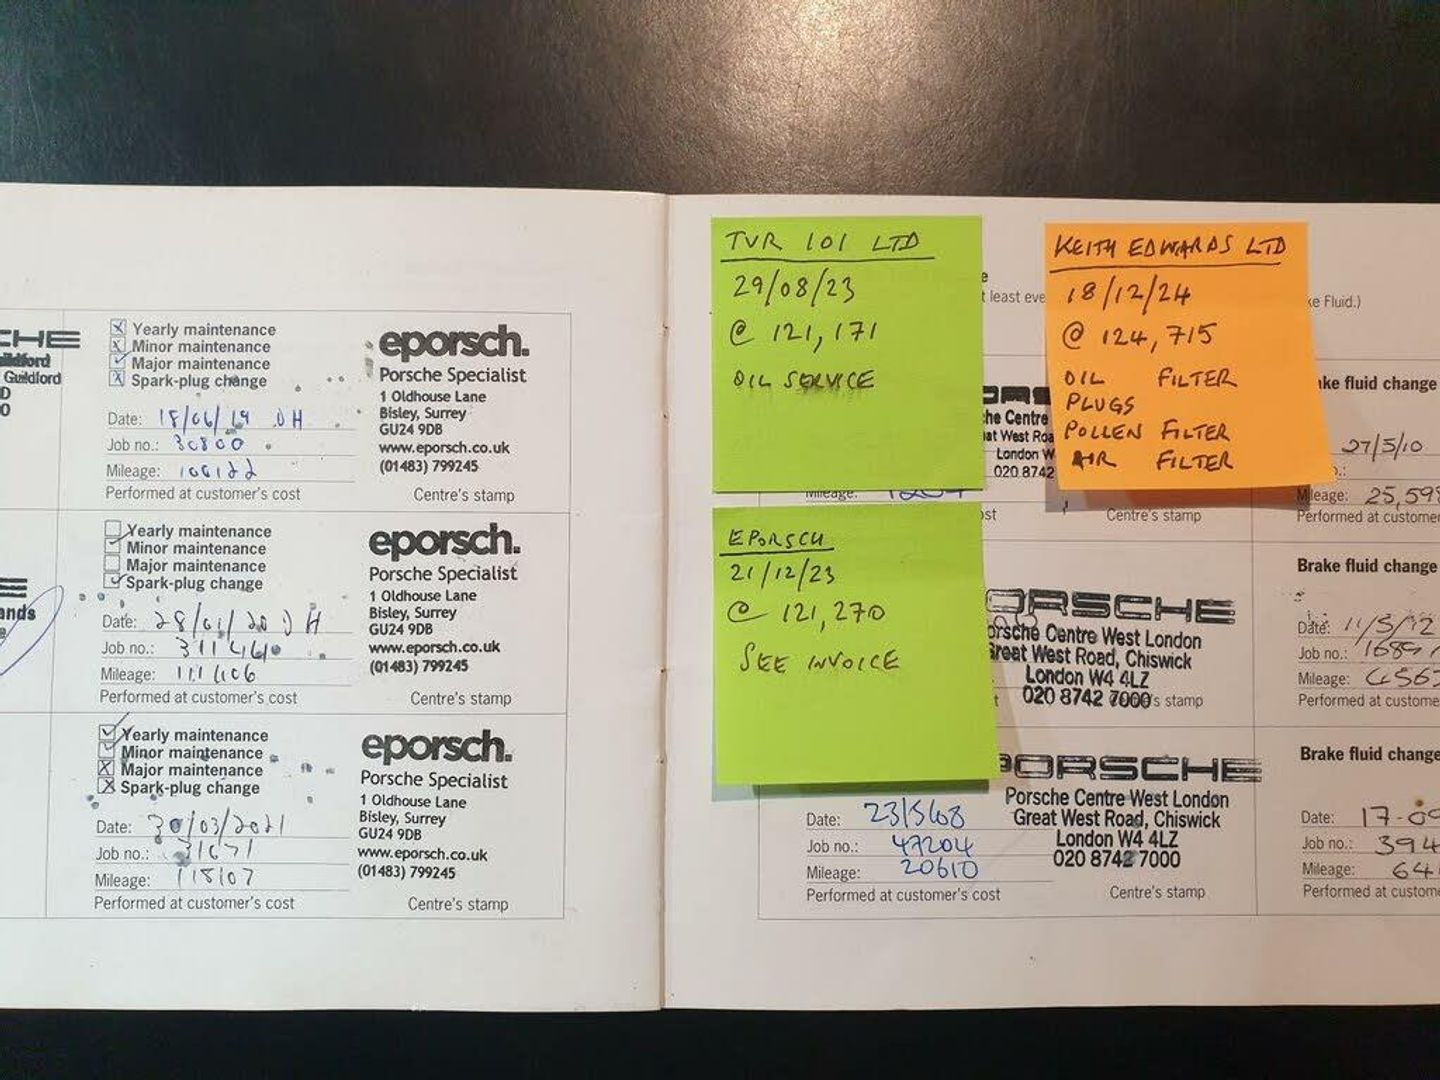 CHE
Guildford
Guildford
D
O
ands
Yearly maintenance
Minor maintenance
Major maintenance
Spark-plug change
Date: 18/06/19 DH
Job no.: 30800
Mileage: 106122
Performed at customer's cost
eporsch.
Porsche Specialist
1 Oldhouse Lane
Bisley, Surrey
GU24 9DB
www.eporsch.co.uk
(01483) 799245
Centre's stamp
Yearly maintenance
Minor maintenance
Major maintenance
Spark-plug change
Date: 28/01/20 DH
Job no.:
Mileage: 111406
Performed at customer's cost
eporsch.
Porsche Specialist
1 Oldhouse Lane
Bisley, Surrey
GU24 9DB
www.eporsch.co.uk
(01483) 799245
Centre's stamp
Yearly maintenance
Minor maintenance
Major maintenance
Spark-plug change
Date: 30/03/2021
Job no.: 31671
Mileage: 118107
Performed at customer's cost
eporsch.
Porsche Specialist
1 Oldhouse Lane
Bisley, Surrey
GU24 9DB
www.eporsch.co.uk
(01483) 799245
Centre's stamp
TVR 101 LTD
29/08/23
@ 121,171
OIL SERVICE
EPORSCH
21/12/23
@ 121,270
SEE INVOICE
KEITH EDWARDS LTD
18/12/24
@ 124,715
OIL FILTER
PLUGS
POLLEN FILTER
AIR FILTER
t least eve
ke Fluid.)
che Centre
at West Roa
London W
020 8742
Mileage:
ost
Centre's stamp
ake fluid change
27/5/10
Mileage: 25,598
Performed at customer
PORSCHE
Porsche Centre West London
Great West Road, Chiswick
London W4 4LZ
020 8742 7000
Centre's stamp
Brake fluid change
Date: 11/5/12
Job no.:
Mileage:
Performed at custome
Date: 23/5/08
Job no.: 47204
Mileage: 20610
Performed at customer's cost
PORSCHE
Porsche Centre West London
Great West Road, Chiswick
London W4 4LZ
020 8742 7000
Centre's stamp
Brake fluid change
Date: 17-09
Job no.: 394
Mileage: 64
Performed at custome